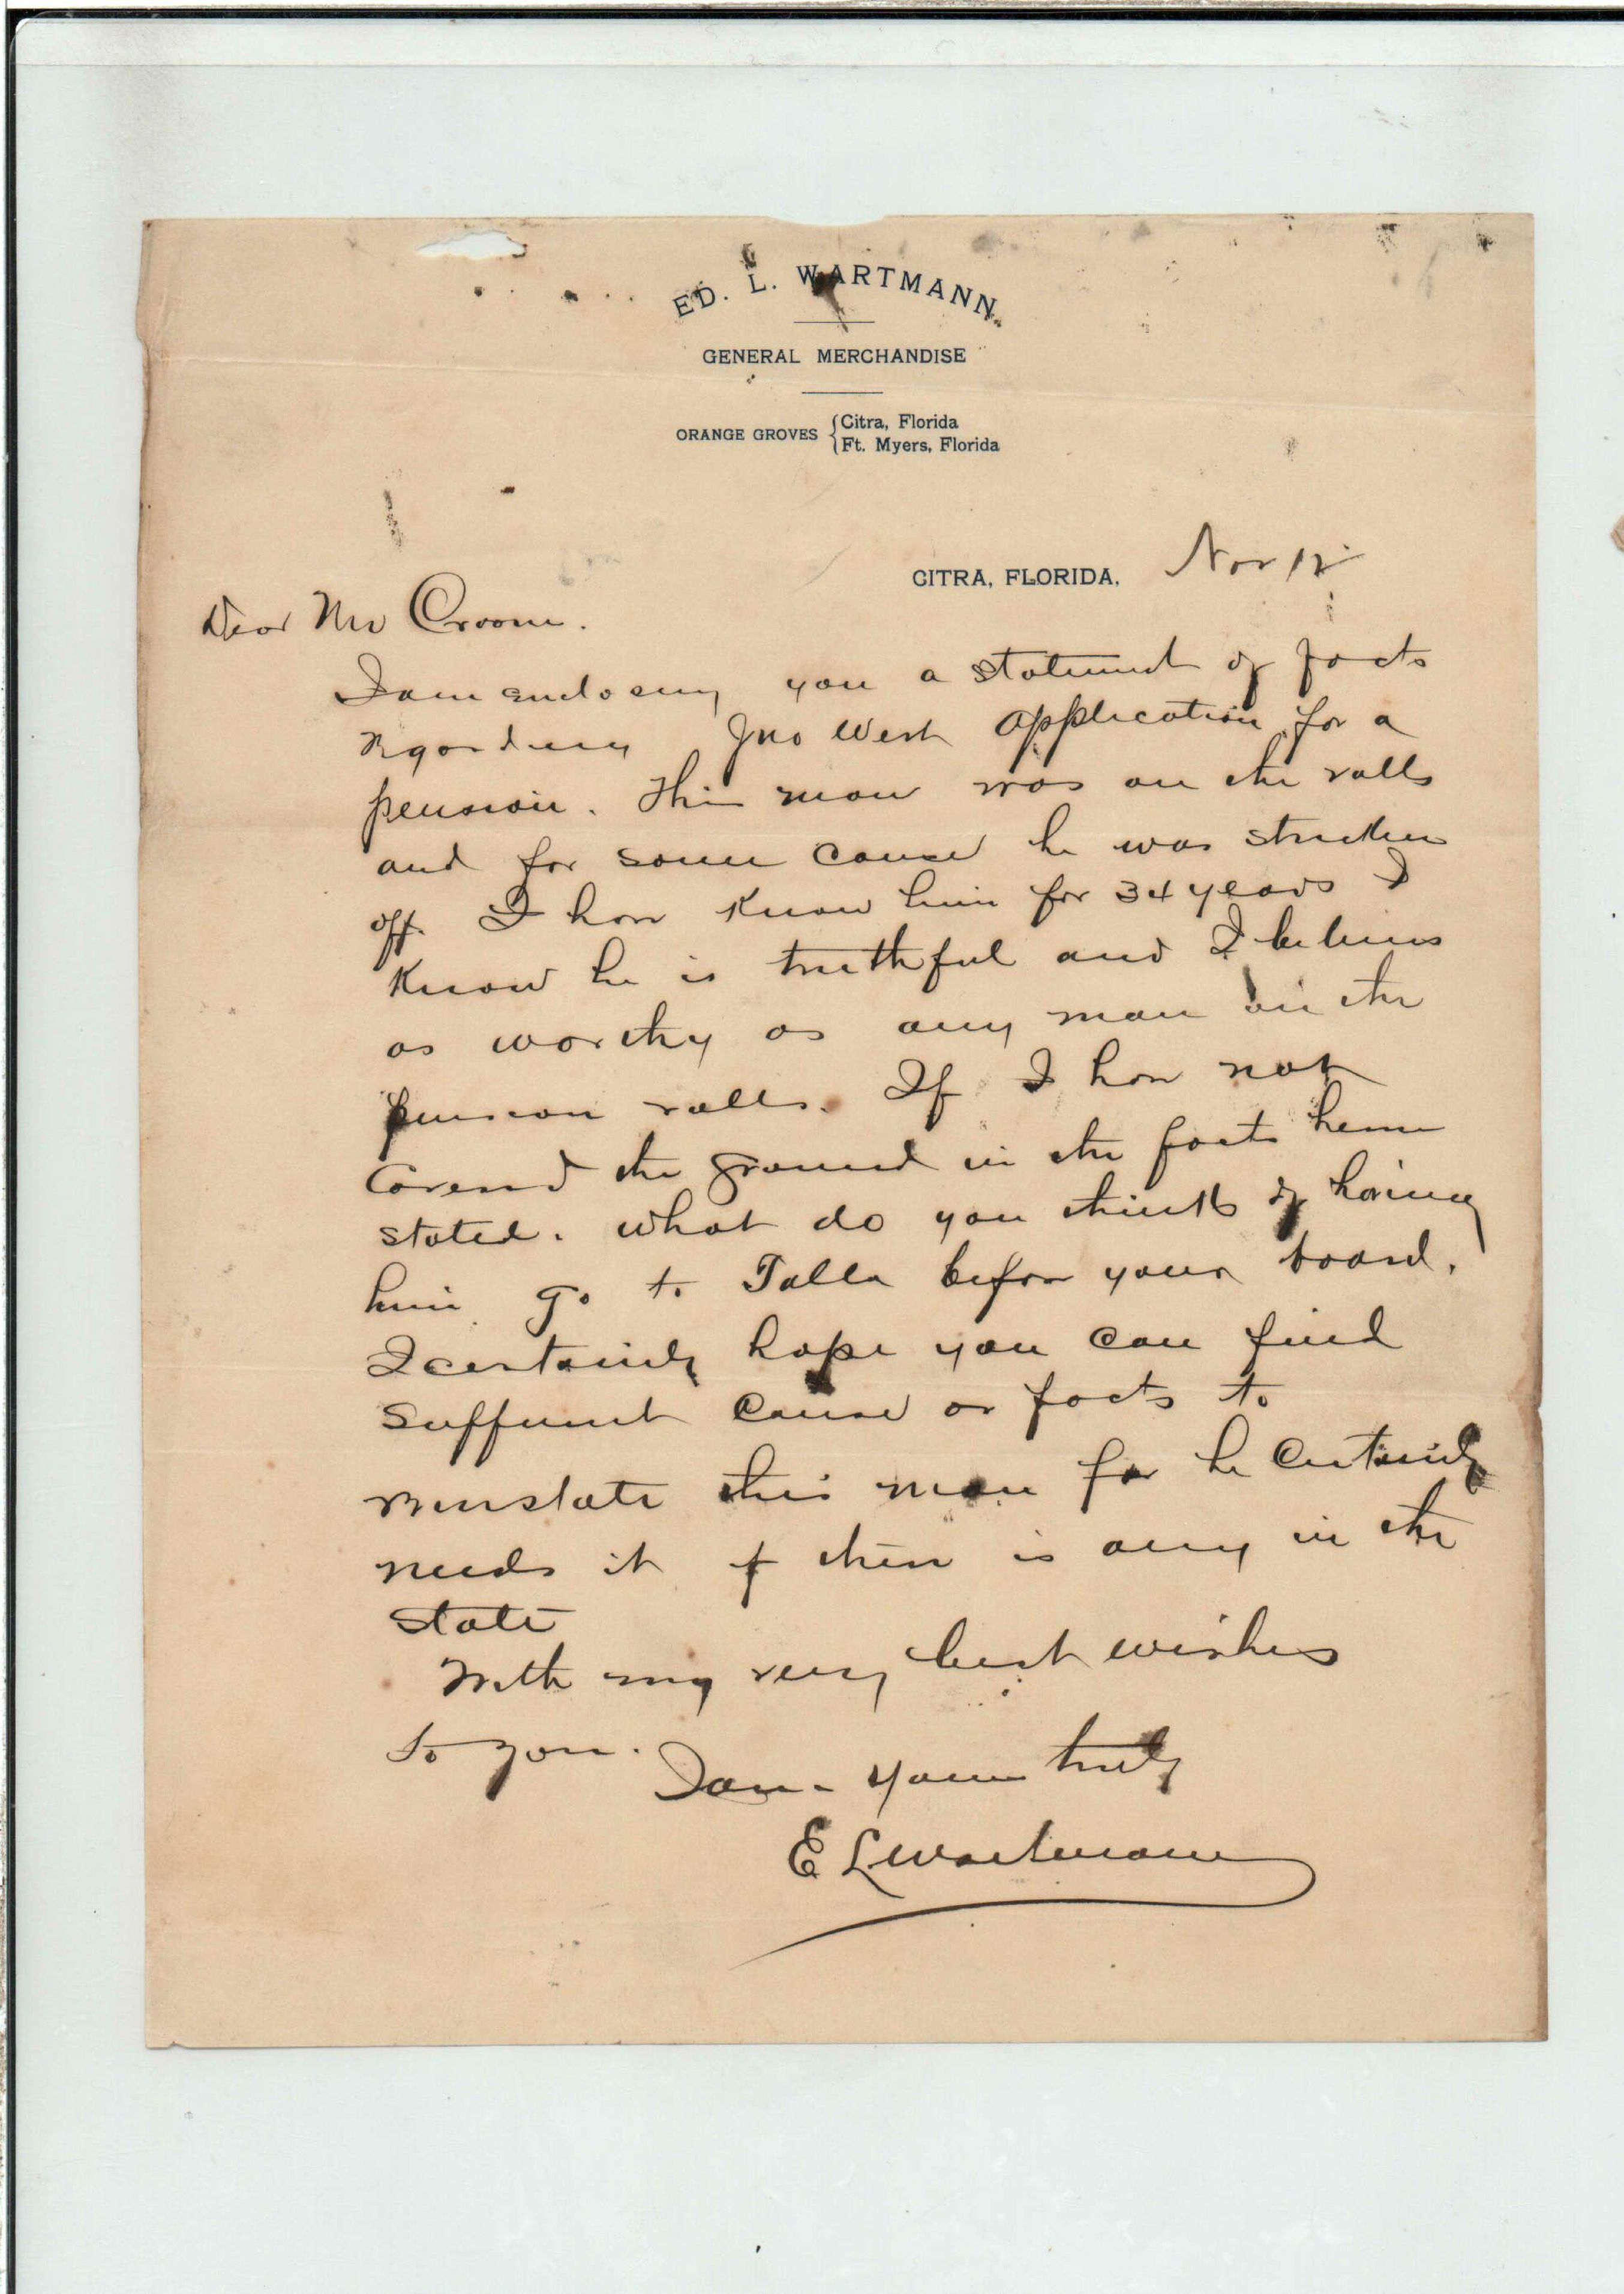 ED. L. WARTMANN
GENERAL MERCHANDISE
ORANGE GROVES { Citra, Florida
Ft. Myers, Florida
CITRA, FLORIDA, Nov 12
Dear Mr Croom.
I am enclosing you a statement of facts
regarding Jno West application for a
pension. This man was on the rolls
and for some cause he was stricken
off. I have known him for 34 years I
know he is truthful and I believe
as worthy as any man on the
pension rolls. If I have not
covered the ground in the facts herein
stated. What do you think of having
him go to Talla before your board.
I certainly hope you can find
sufficient cause or facts to
reinstate this man for he certainly
needs it if there is any in the
state
With my very best wishes
to you.
I am yours truly
E L Wartmann